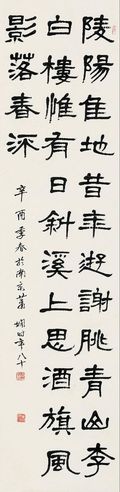 陵陽佳地昔年遊謝朓青山李
白樓惟有日斜溪上思酒旗風
影落春流
辛酉季春於南京蕭嫻時年八十